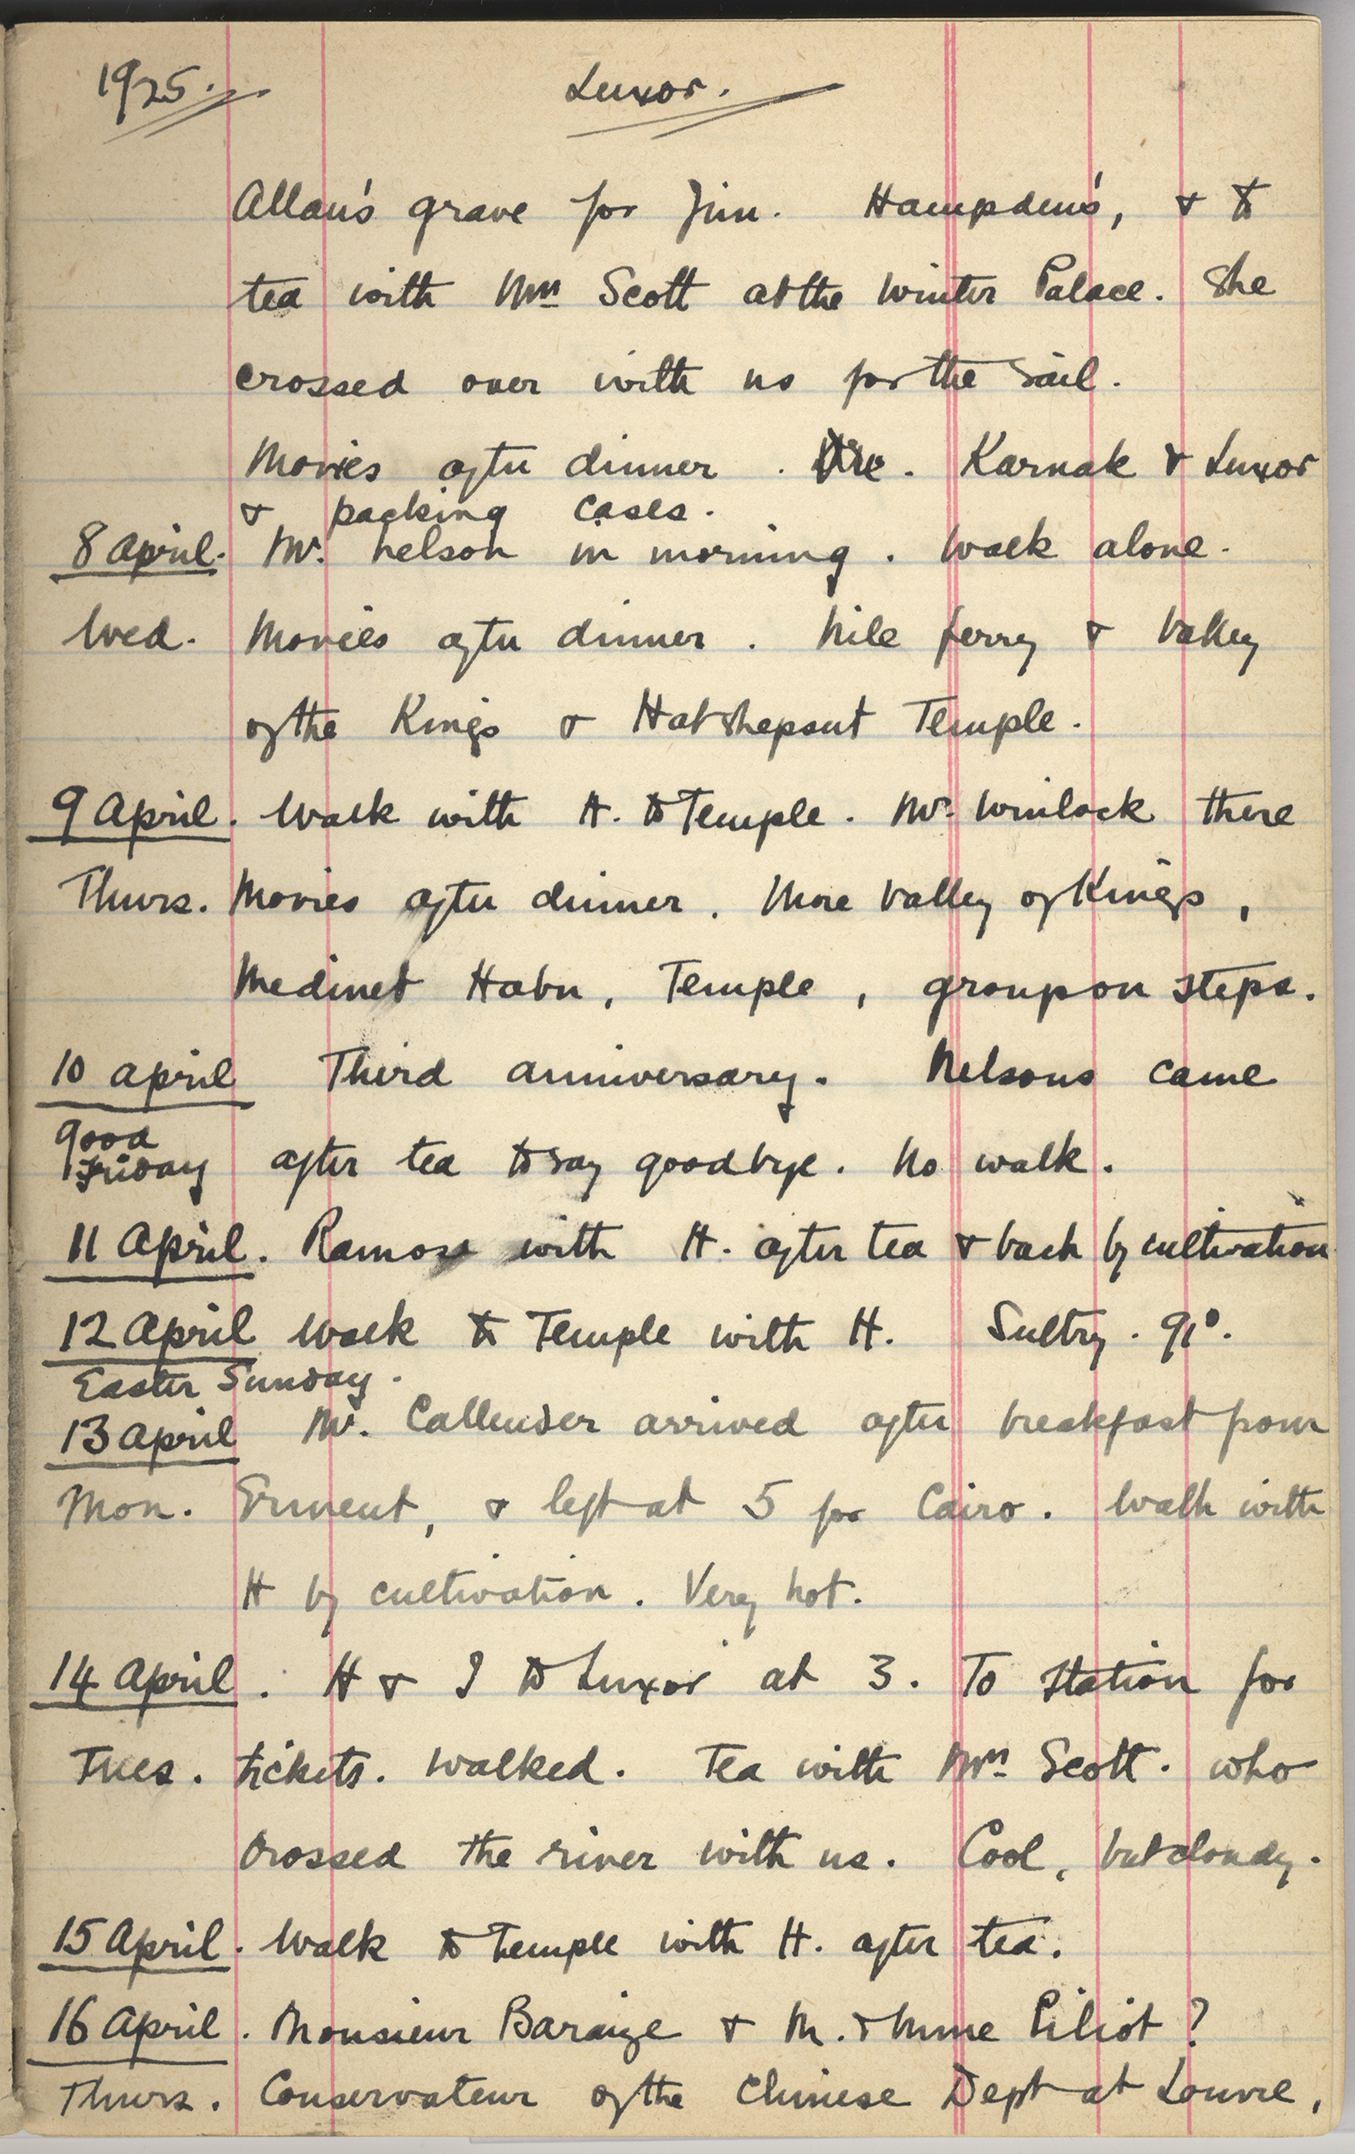 1925. Luxor.
Allan's grave for Jim. Hampden's, & to
tea with Mrs Scott at the Winter Palace. She
crossed over with us for the sail.
Movies after dinner. Karnak & Luxor
& packing cases.
8 April. Mr. Nelson in morning. Walk alone.
Wed. Movies after dinner. Nile ferry & Valley
of the Kings & Hatshepsut Temple.
9 April. Walk with H. to Temple. Mr. Winlock there
Thurs. Movies after dinner. More Valley of Kings,
Medinet Habu, Temple, group on steps.
10 April Third anniversary. Nelsons came
Good
Friday after tea to say goodbye. No walk.
11 April. Ramose with H. after tea & back by cultivation
12 April Walk to Temple with H. Sultry. 91°.
Easter Sunday.
13 April Mr. Callender arrived after breakfast from
Mon. Erment, & left at 5 for Cairo. Walk with
H by cultivation. Very hot.
14 April. H & I to Luxor at 3. To station for
Tues. tickets. Walked. Tea with Mrs Scott. who
crossed the river with us. Cool, but cloudy.
15 April. Walk to Temple with H. after tea.
16 April. Monsieur Baraize & M. & Mme Piliot?
Thurs. Conservateur of the Chinese Dept at Louvre,